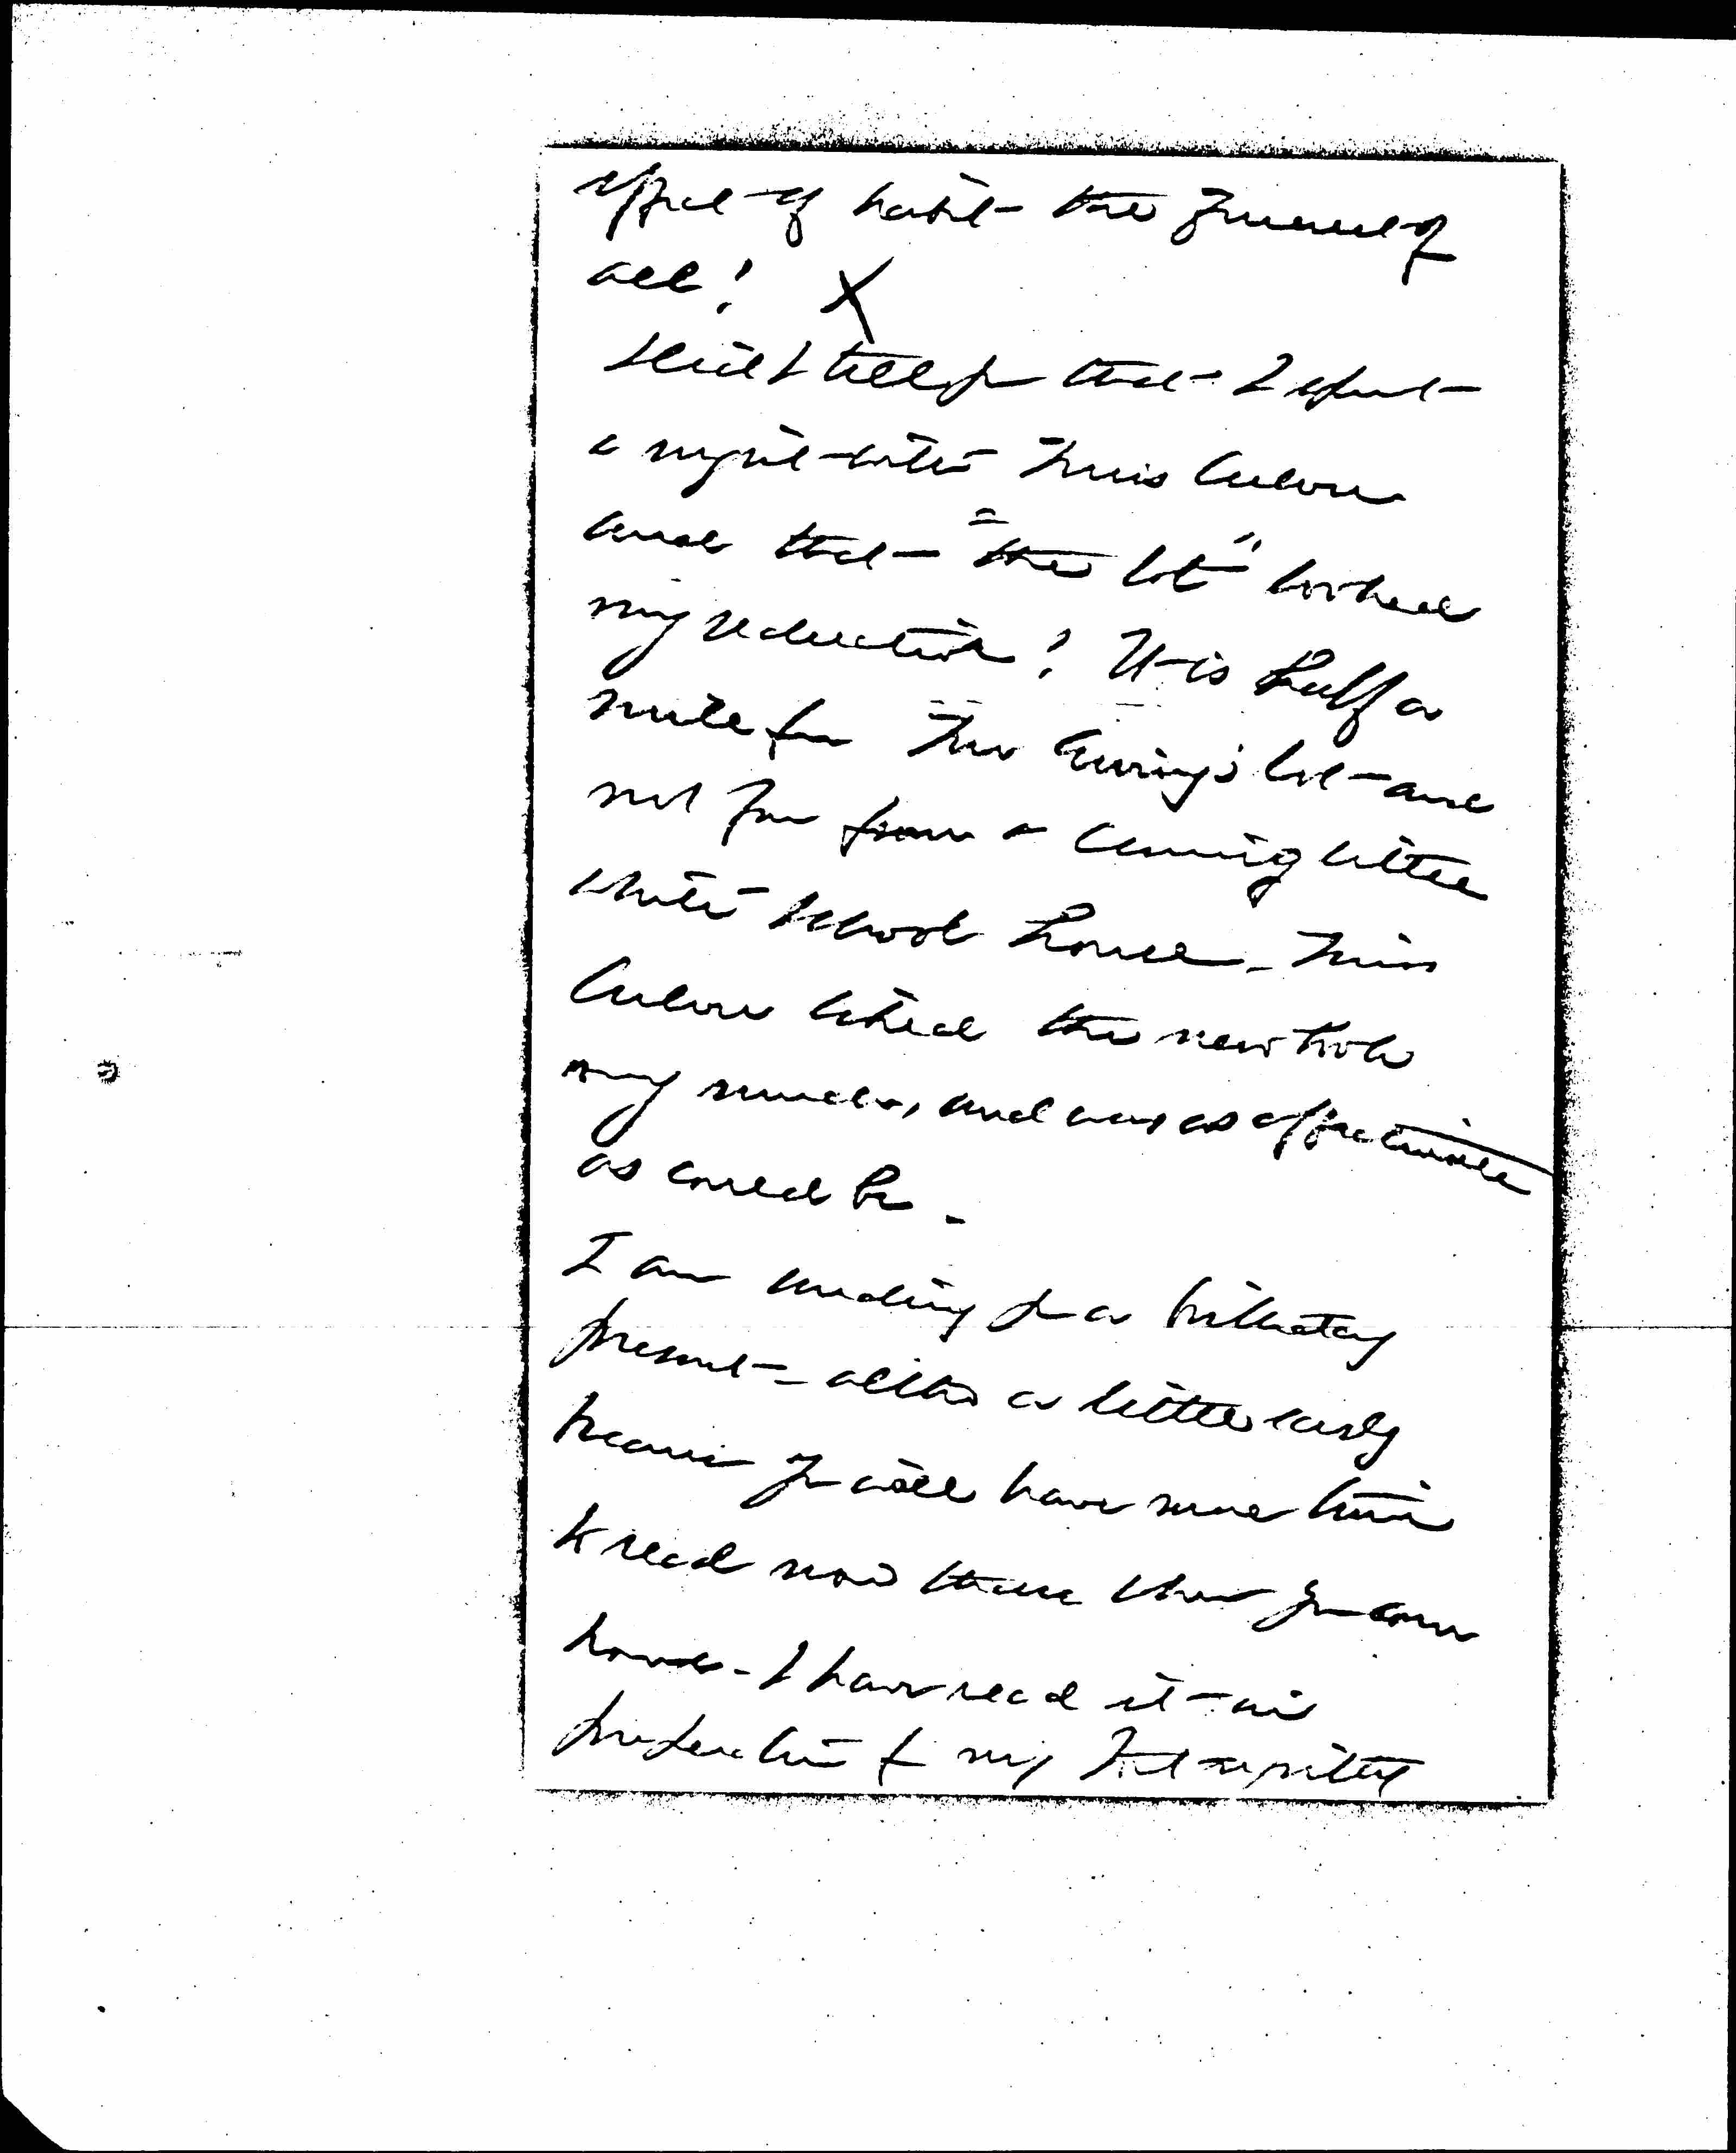 effect of habit - the funniest of
all! X
Did I tell you that I spent
a night with Miss Culver
and that "the lot" looked
my reduction! It is half a
mile from Mrs Ewing's lot - and
not far from a cunning little
white school house - Miss
Culver liked the new book
very much, and was as affectionate
as could be -
I am sending you a birthday
present - altho a little early
because you will have more time
to read now than when you come
home - I have read it in
preparation for my